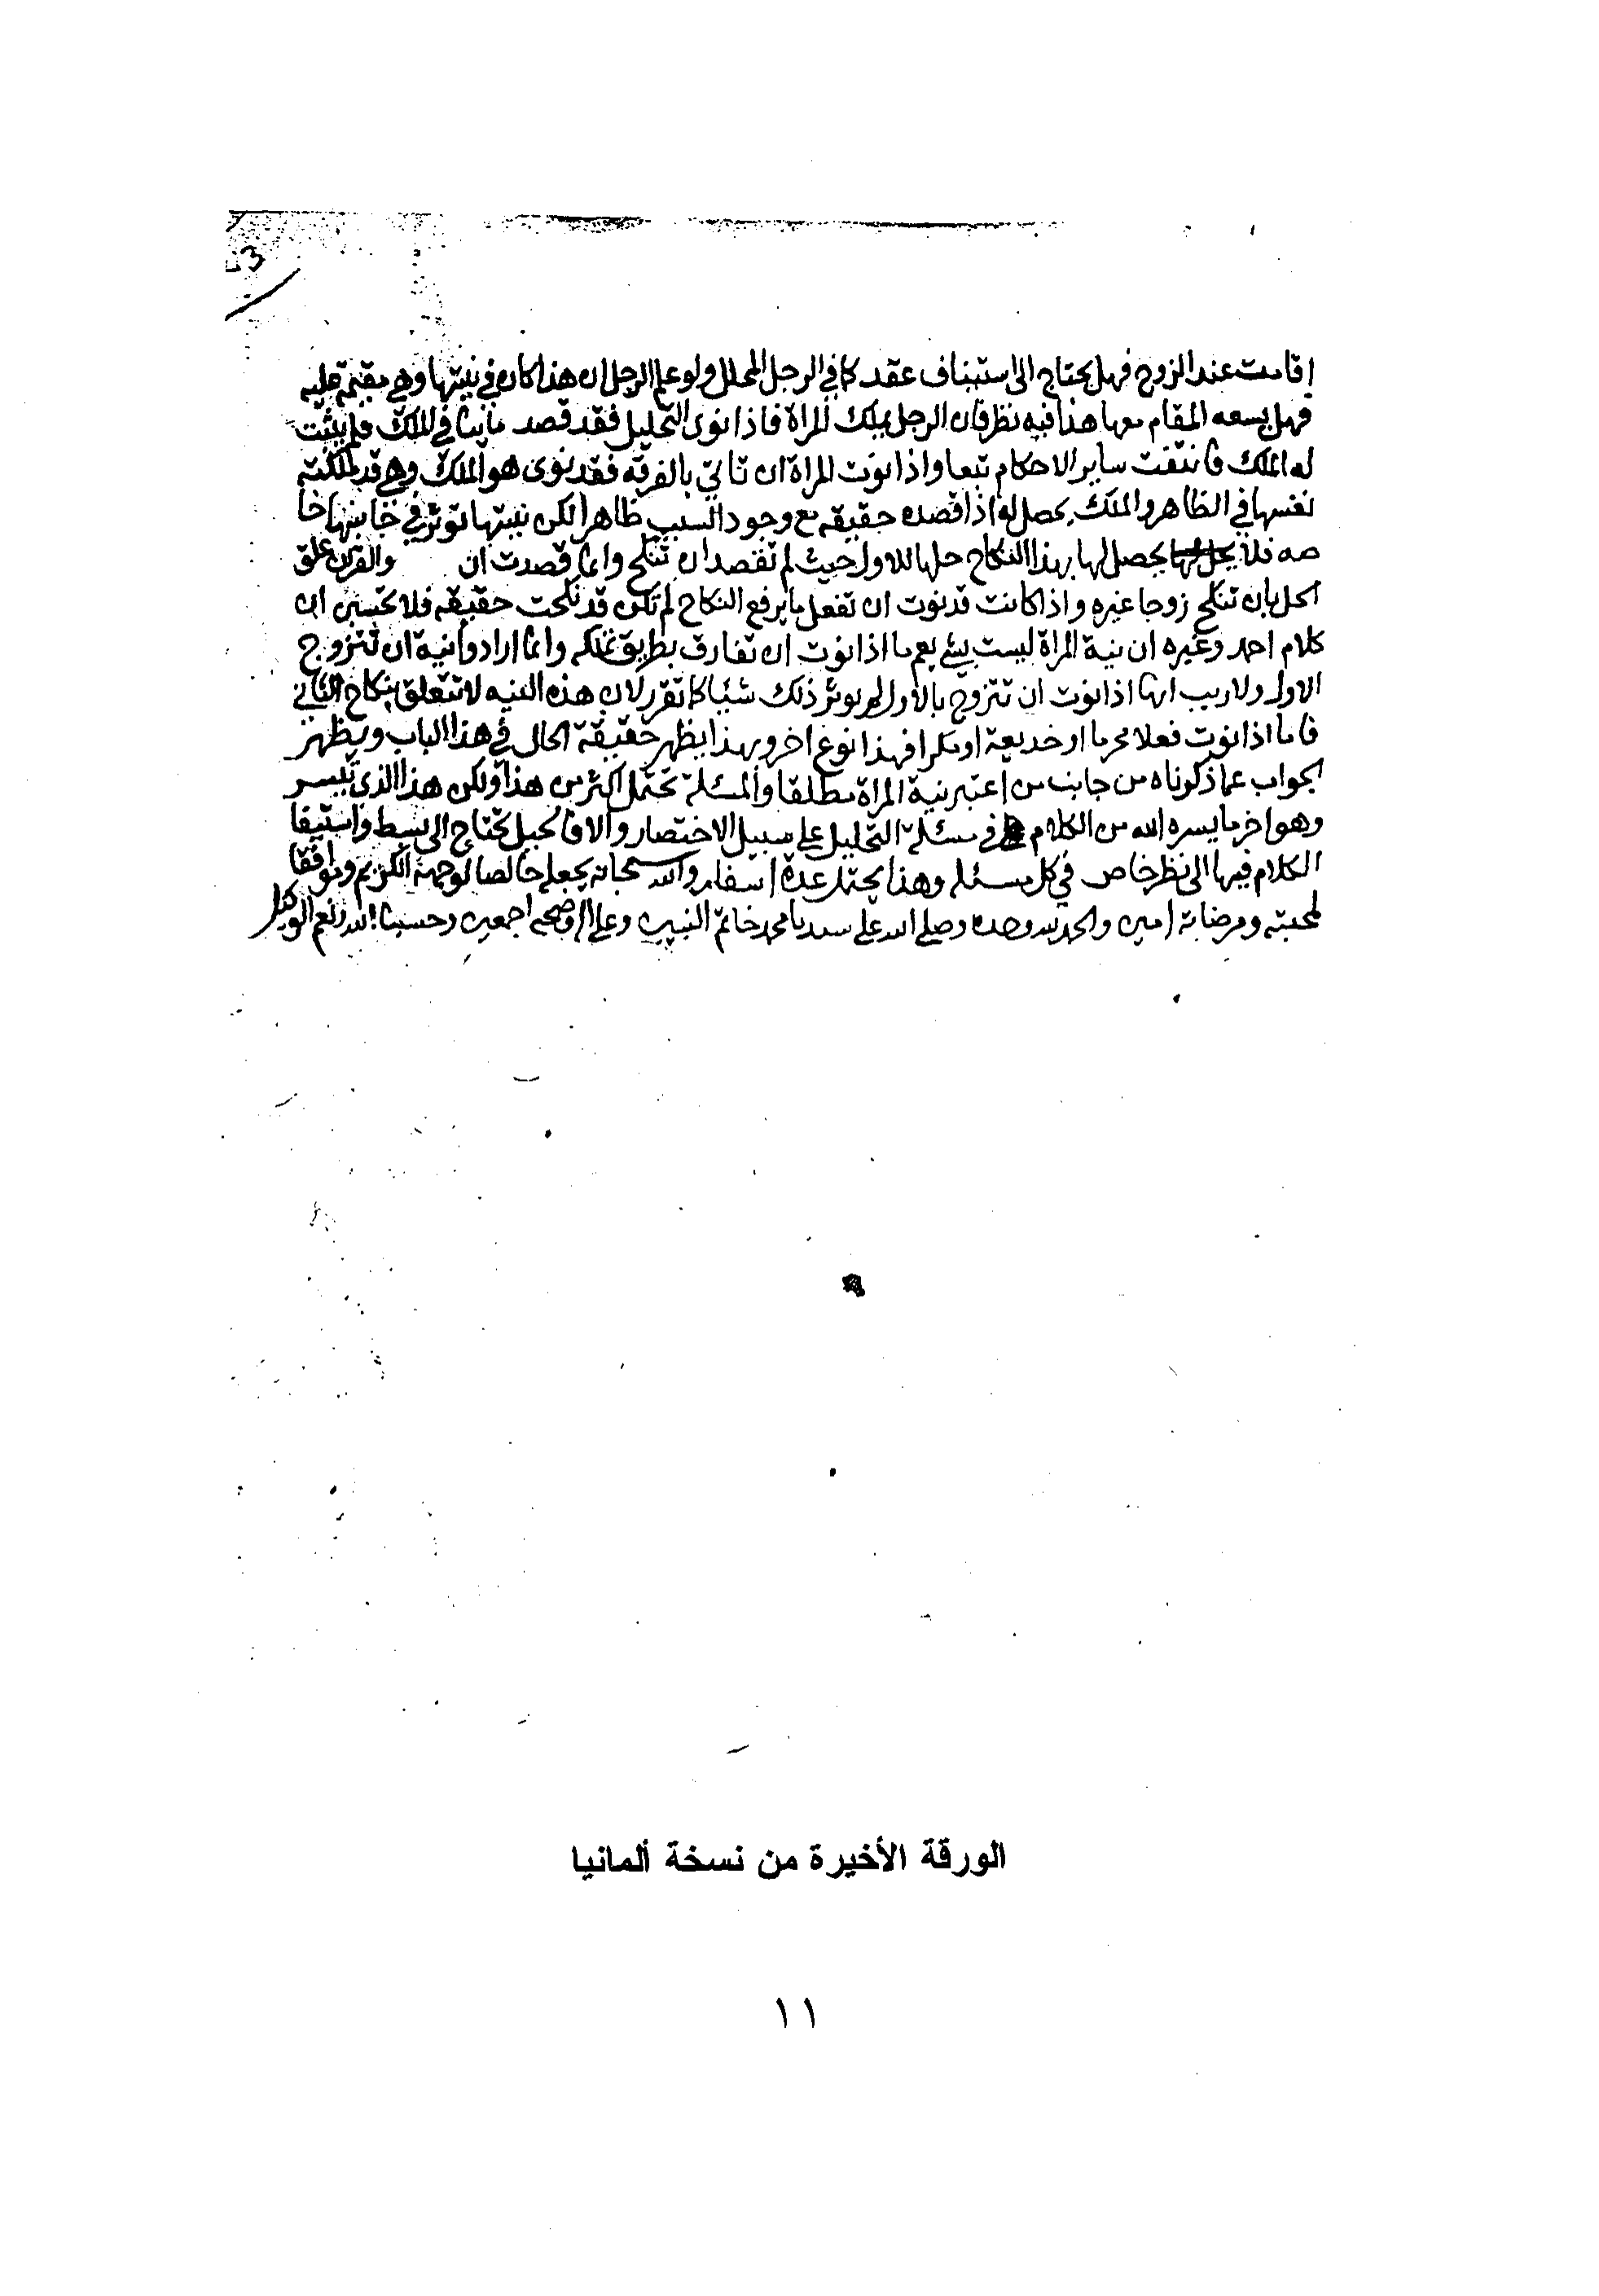 إقامت عند الزوج فهل يحتاج الى استيناف عقد كما في الرجل المحلل ولو علم الرجل ان هذا كان في نيتها وهي مقيمة عليه
فهل يسعه المقام معها هذا فيه نظر فان الرجل يملك المراة فاذا نوى التحليل فقد قصد ما ينافي الملك فلم يثبت
له الملك فانتفت ساير الاحكام تبعا واذا نوت المراة ان تاتي بالفرقه فقد نوى هو الملك وهي قد ملكته
نفسها في الظاهر والملك يحصل له اذا قصده حقيقه مع وجود السبب ظاهرا لكن نيتها توثر في جانبها خا
صه فلا يحصل لها بهذا النكاح حلها للاول حيث لم تقصد ان تنكح وانما قصدت ان والقران علق
الحل بان تنكح زوجا غيره واذا كانت قد نوت ان تفعل ما يرفع النكاح لم تكن قد نكحت حقيقه فلا تحسبن ان
كلام احمد وغيره ان نية المراة ليست بشي يعم ما اذا نوت ان تفارق بطريق تملكه وانما ارادوا نية ان تتزوج
الاول ولا ريب انها اذا نوت ان تتزوج بالاول لم يوثر ذلك شيئا كما تقرر لان هذه النيه لا تتعلق بنكاح الثاني
فاما اذا نوت فعلا محرما او خديعة او مكرا فهذا نوع اخر وبهذا يظهر حقيقة الحال في هذا الباب ويظهر
الجواب عما ذكرناه من جانب من اعتبر نية المراة مطلقا والمسئلة تحتمل اكثر من هذا ولكن هذا الذي تيسر
وهو اخر ما يسره الله من الكلام في مسئلة التحليل على سبيل الاختصار والا فالحيل تحتاج الى بسط واستيفا
الكلام فيها الى نظر خاص في كل مسئله وهذا يحتمل عدة اسفار والله سبحانه يجعله خالصا لوجهه الكريم وموافقا
لمحبته ومرضاته امين والحمد لله وحده وصلى الله على سيدنا محمد خاتم النبيين وعلى اله وصحبه اجمعين وحسبنا الله ونعم الوكيل
الورقة الأخيرة من نسخة ألمانيا
١١